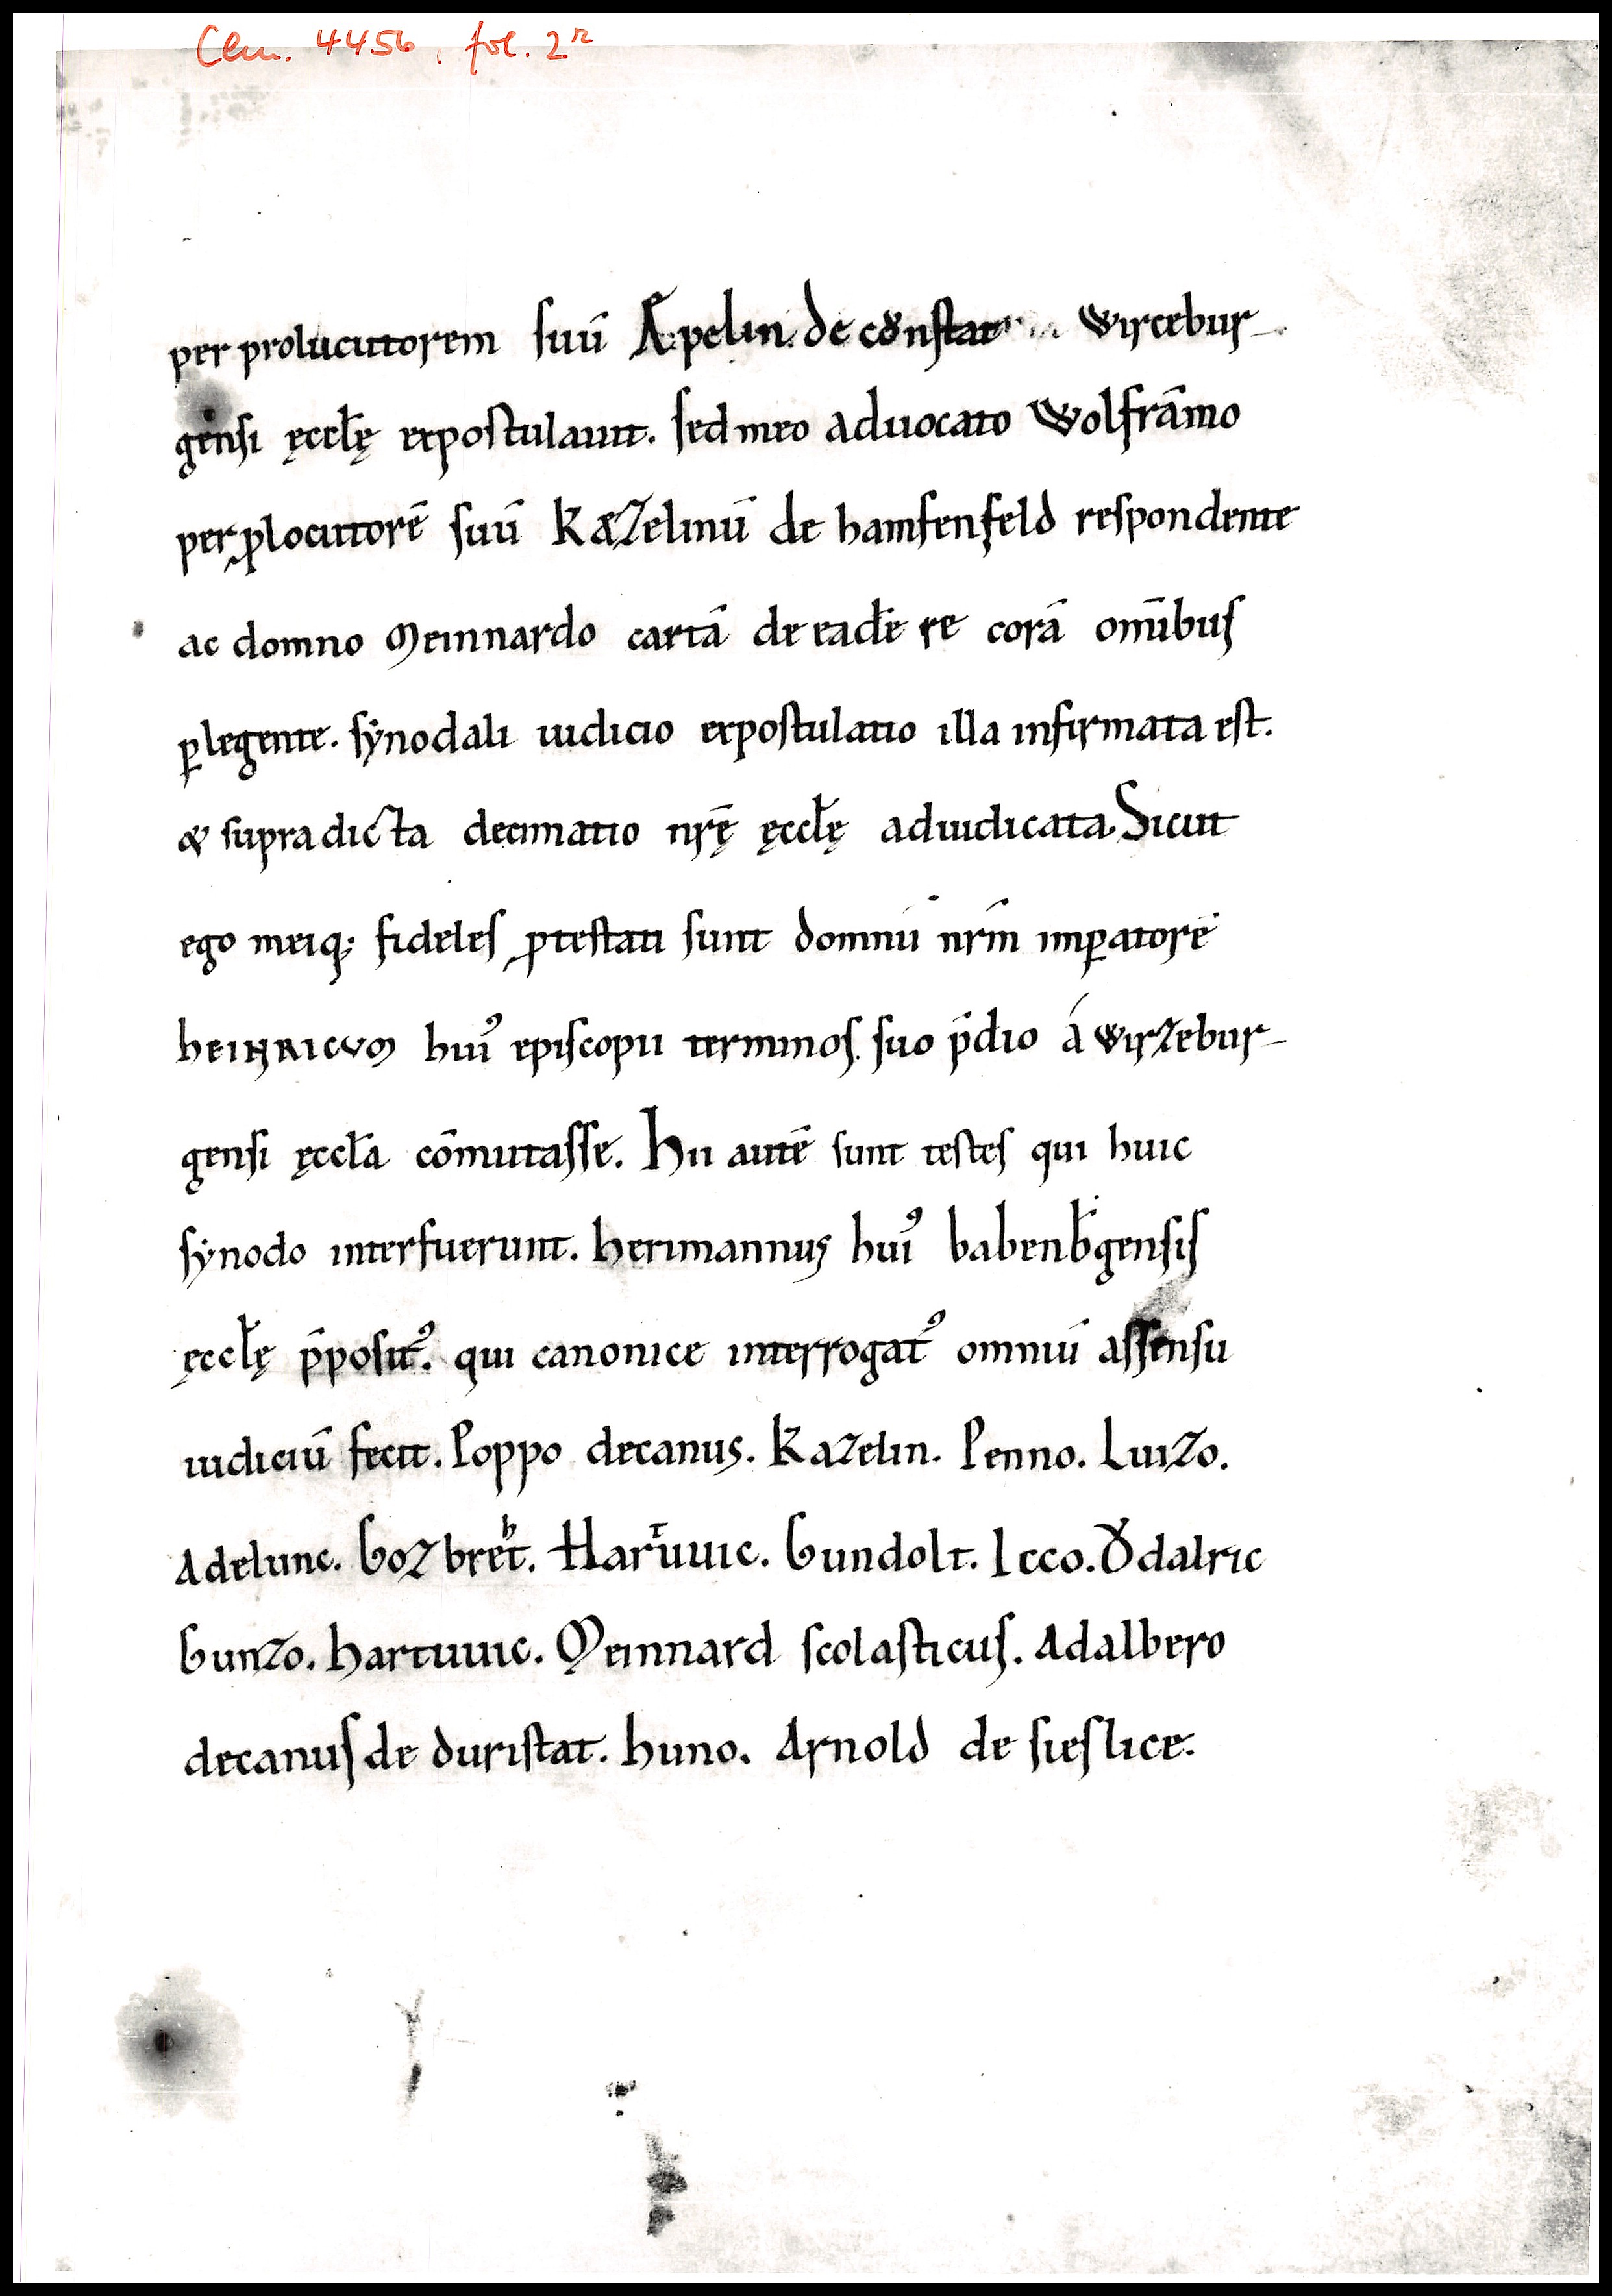 Clm. 4456, fol. 2r
per prolucutorem suū Apelin de constat wircebur-
gensi ęccłę expostulauit. sed meo aduocato Wolfrāmo
per ꝓlocutorē suū Kæzelinū de hamsenfeld respondente
ac domno Meinnardo cartā de eadē re corā omībus
ꝑlegente. sẏnodali iudicio expostulatio illa infirmata est.
& supradicta decimatio nr̄ę ęccłę adiudicata. Sicut
ego meiq; fideles ꝓtestati sunt domnū nr̄m imꝑatorē
heinricum hui᾿ episcopii terminos suo p̄dio á wirzebur-
gensi ęccła cōmutasse. Hii autē sunt testes qui huic
sẏnodo interfuerunt. Herimannus hui᾿ babenb̄gensis
ęccłę p̄posit᾿. qui canonice interrogat᾿ omniū assensu
iudiciū fecit. Poppo decanus. Kazelin. Penno. Luizo.
Adelunc. Gozbret. Haruuic. Gundolt. Icco. Ǒdalric
Gunzo. Hartuuic. Meinnard scolasticus. Adalbero
decanus de duristat. Huno. Arnold de sieslice.